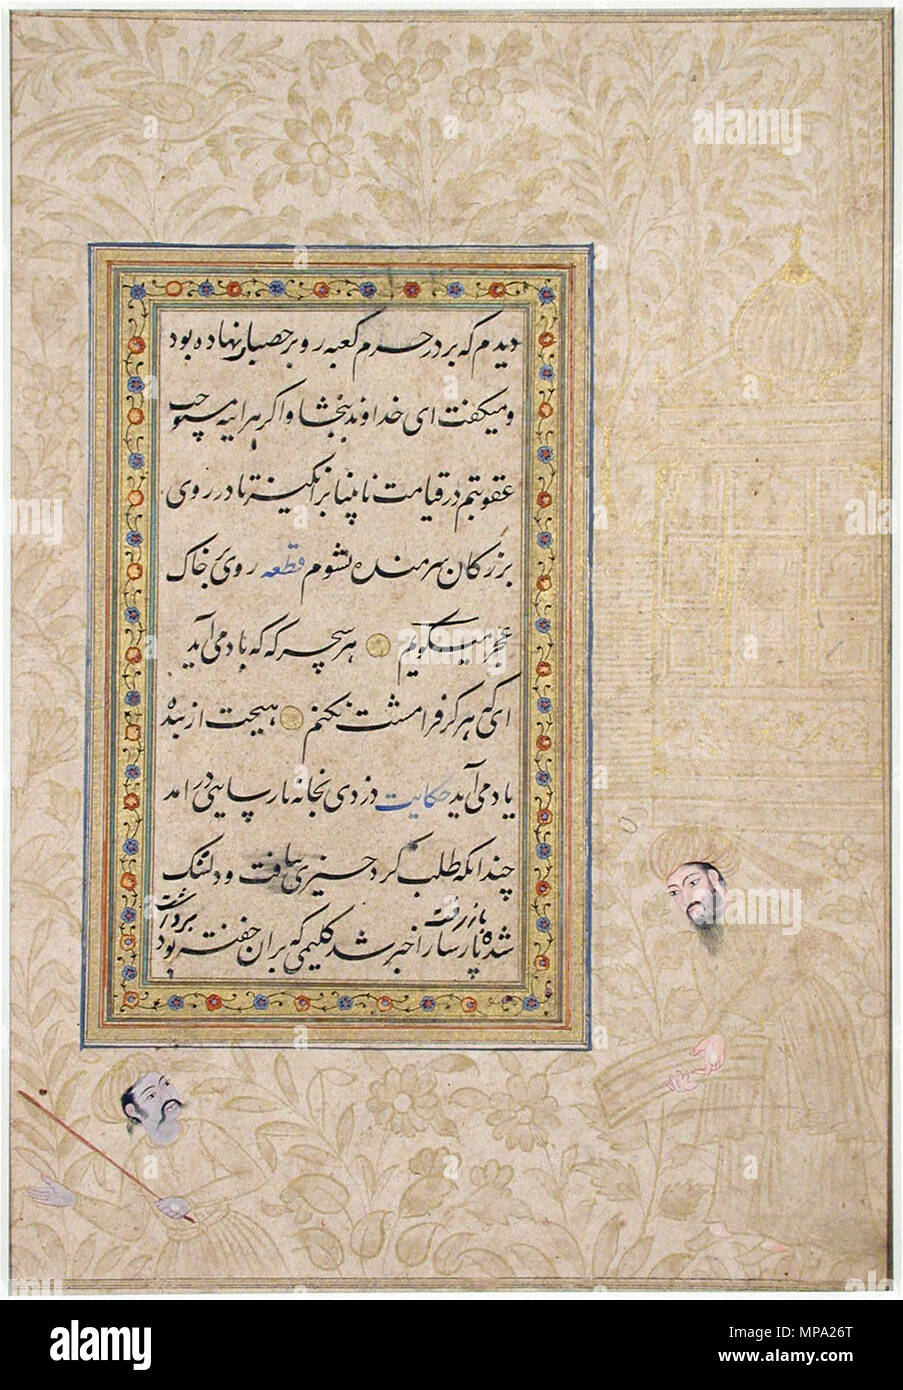 دیدم که بر در حرم کعبه رو بر حصبا نهاده بود
و میکفت ای خداوند ببخشا و اکر هراینه مستوجب
عقوبتم در قیامت نابینا برانکیز تا در روی
بزرکان شرمنده نشوم قطعه روی خاک
عجز میکویم هر سحر که که باد می آید
ای که هرکز فرامشت نکنم هیچت از بنده
یاد می آید حکایت دزدی بخانه پارسایی درامد
چندانکه طلب کرد چیزی نیافت و دلتنک
شده باز رفت پارسا را خبر شد کلیمی که بران خفته بود برداشت
alamy
alamy
Image ID: MPA26T
www.alamy.com